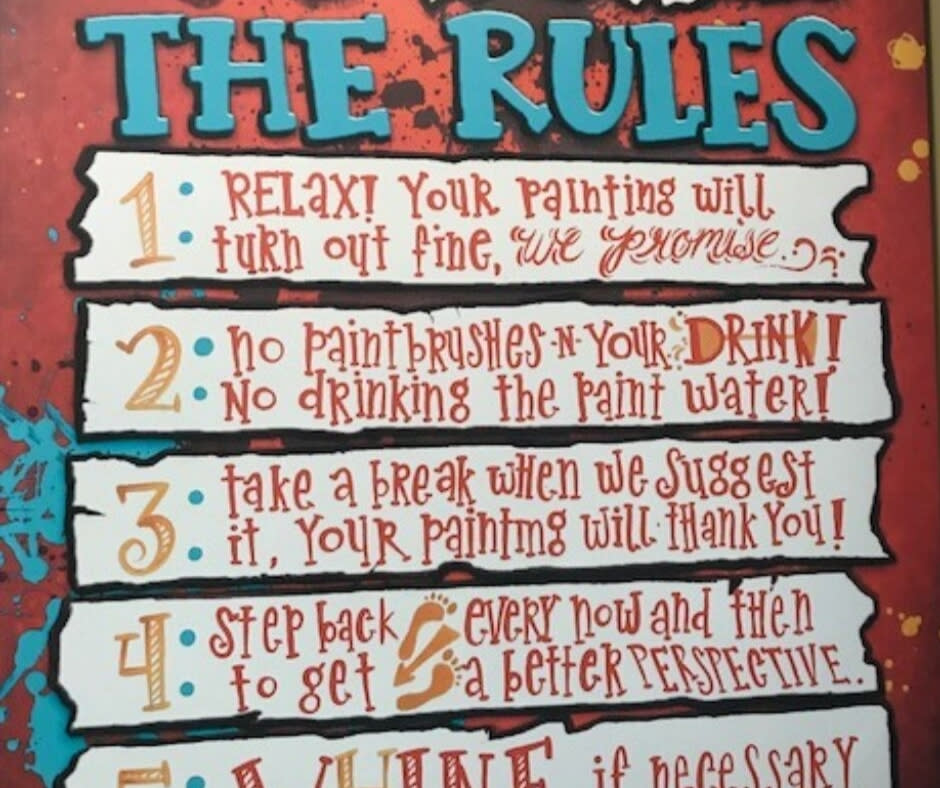 THE RULES
1: RELaX! Your painting will
turn out fine, we promise.
2: no paintbrushes-n-your DRINK!
No drinking the paint water!
3: take a break when we suggest
it, your painting will thank you!
4: Step back every now and then
to get a better PERSPECTIVE.
5: WHINE if necessary.